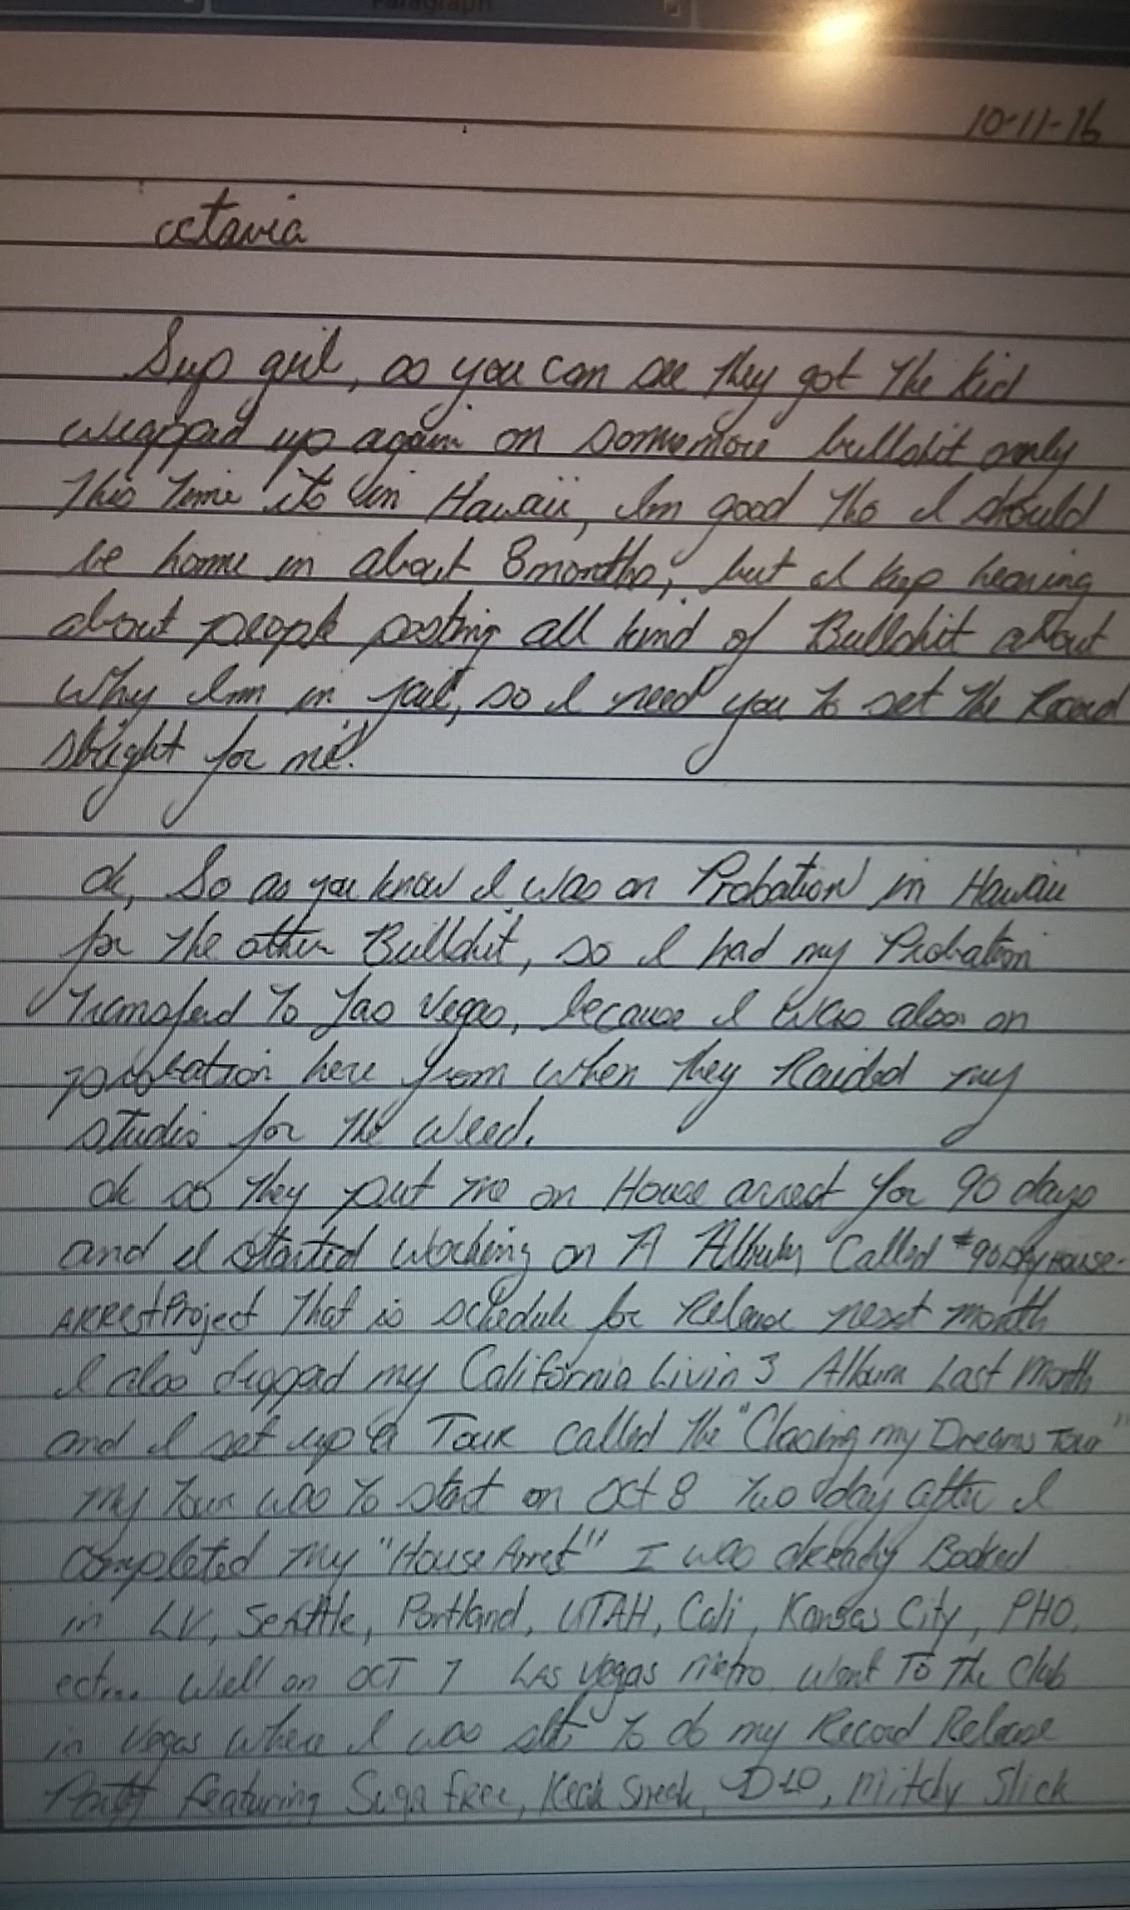 Paragraph
10-11-16
octavia
Sup girl, as you can see they got the kid
wrapped up again on somemore bullshit only
this time its in Hawaii, Im good tho I should
be home in about 8months, but I keep hearing
about people posting all kind of Bullshit about
Why Im in jail, so I need you to set the Record
stright for me.
ok, So as you know I was on Probation in Hawaii
for the other Bullshit, so I had my Probation
transferd to Las Vegas, because I was also on
probation here from when they Raided my
studio for the weed.
ok so they put me on House arrest for 90 days
and I started working on A Album Called #90DayHouse-
ARRESTProject that is schedule for Release next month
I also dropped my California Livin 3 Album Last Month
and I set up a Tour called the "Chasing my Dreams Tour"
my tour was to start on Oct 8 two day after I
completed my "House Arrest" I was already Booked
in LV, Seattle, Portland, UTAH, Cali, Kansas City, PHO,
ect... Well on OCT 7 Las Vegas metro went To The Club
in Vegas where I was to do my Record Release
Party featuring Suga free, Keak Sneek, D-Lo, Mitchy Slick